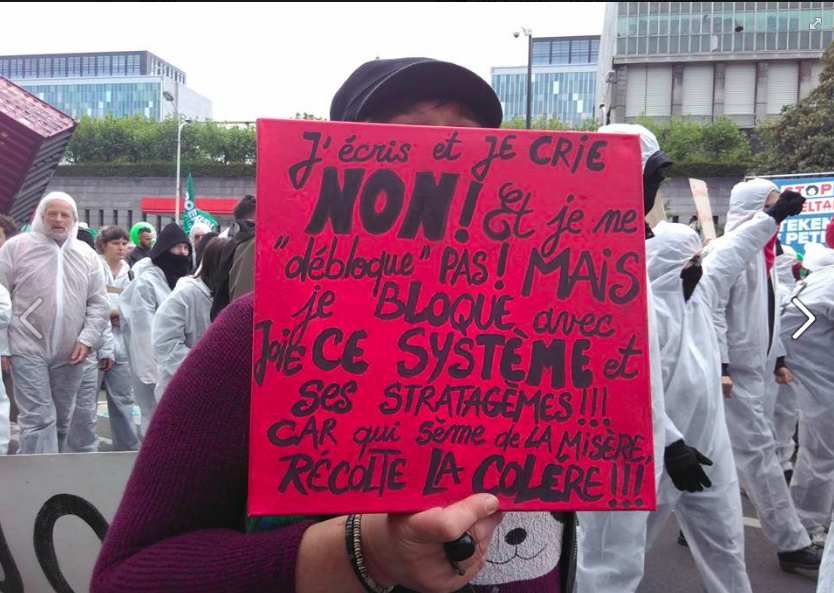 J'écris et JE CRIE
NON! Et je ne
"débloque" PAS! MAIS
je BLOQUE avec
Joie CE SYSTÈME et
Ses STRATAGÈMES!!!
CAR qui sème de LA MISÈRE,
RÉCOLTE LA COLÈRE!!!
STOP
TEKEN